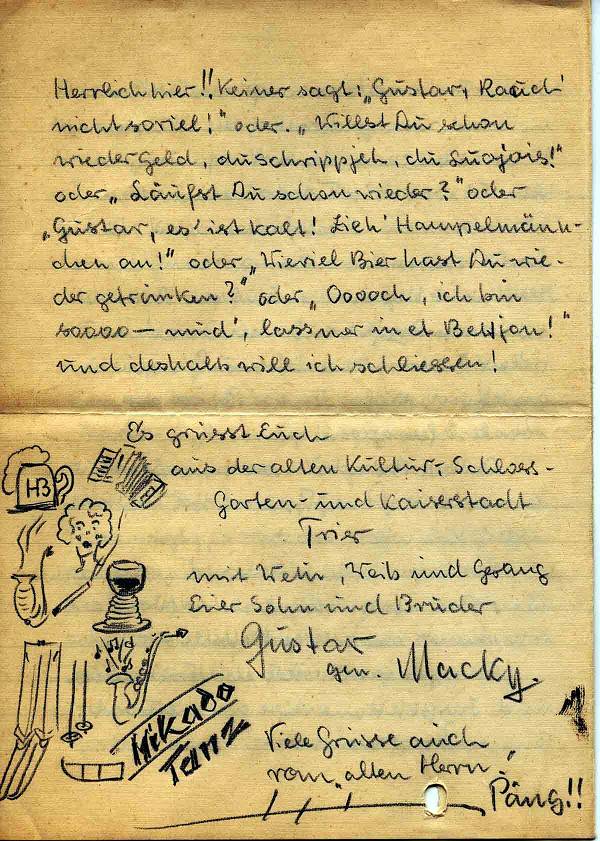 Herrlich hier!! Keiner sagt: „Gustav, Rauch'
nicht soviel!" oder „Willst Du schon
wieder Geld, du Schrippjeh, du Luajois!"
oder „Läufst Du schon wieder?" oder
„Gustav, es ist kalt! Zieh' Hampelmänn-
chen an!" oder „Wieviel Bier hast Du wie-
der getrunken?" oder „Ooooch, ich bin
soooo — müd', lass mer in et Bett jon!"
und deshalb will ich schliessen!
Es grüsst Euch
aus der alten Kultur-, Schloss-
Garten- und Kaiserstadt
Trier
mit Wein, Weib und Gesang
Euer Sohn und Bruder
Gustav
gen. Macky.
HB
Mikado
Tanz
Viele Grüsse auch
vom „alten Herrn"
Päng!!